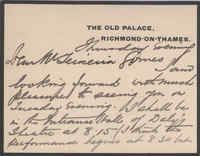 THE OLD PALACE,
RICHMOND-ON-THAMES.
Thursday evening
Dear Mr Teixeira Gomes
I am looking forward with much
pleasure to seeing you on
Tuesday Evening. We shall be
in the Entrance Hall of Daly's
Theatre at 8.15. I think the
performance begins at 8.30 but